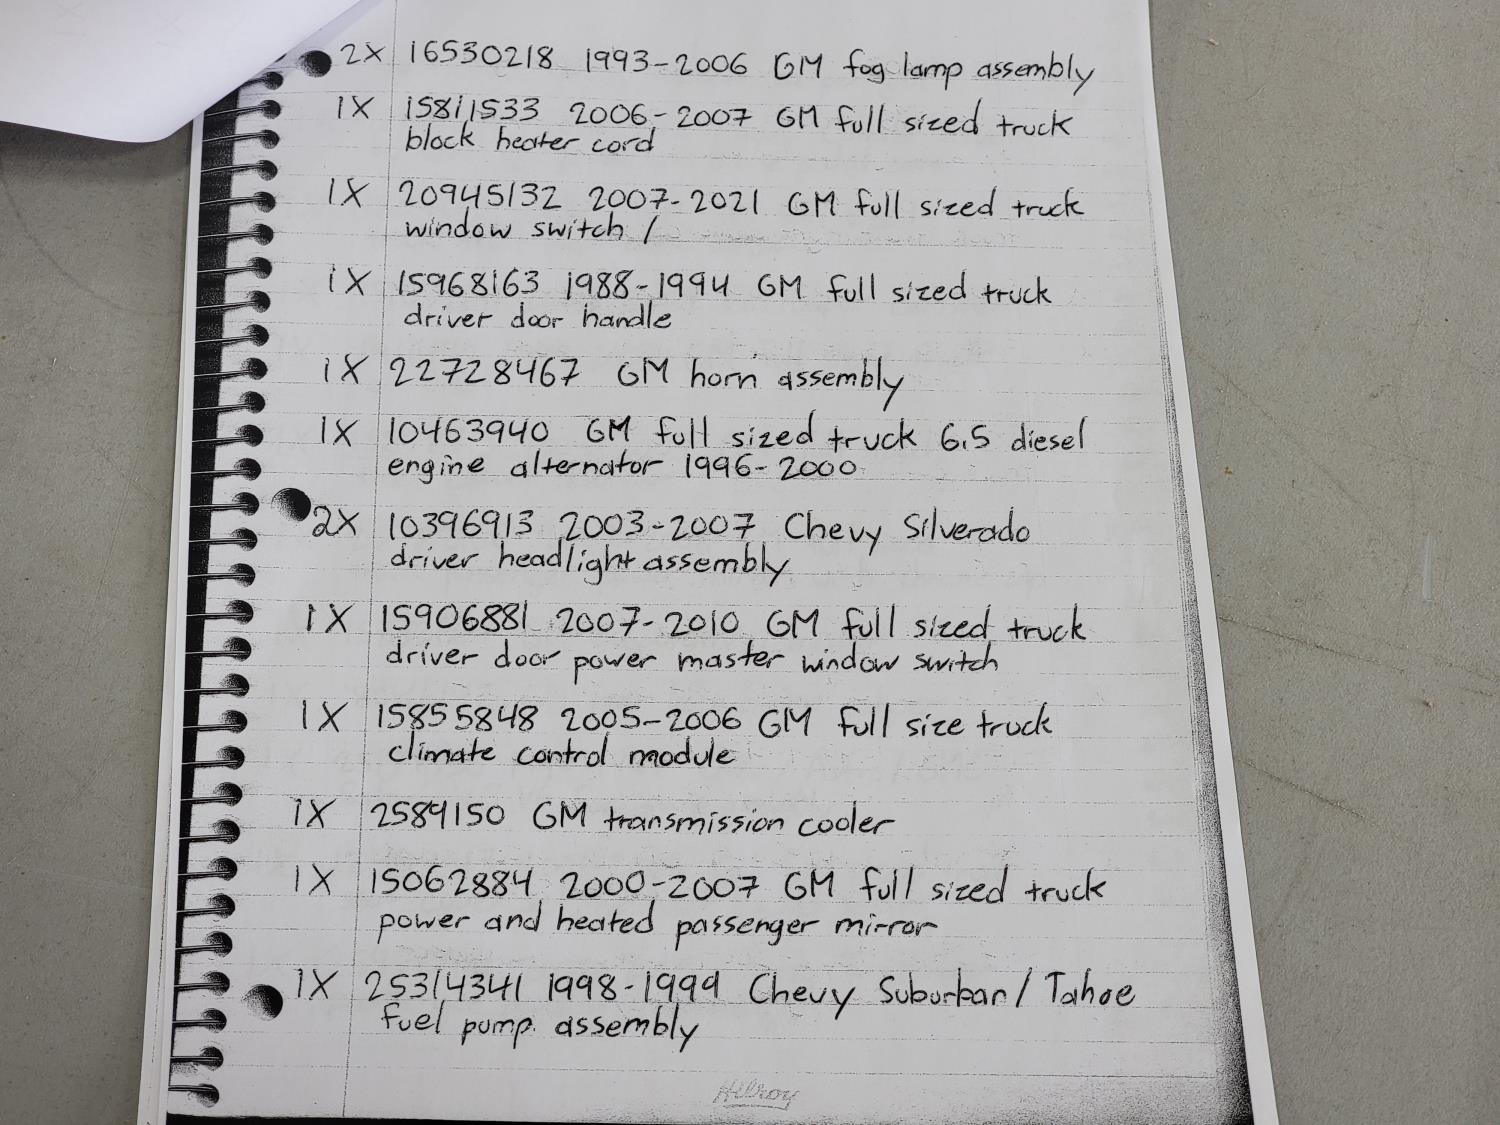 2X 16530218 1993-2006 GM fog lamp assembly
1X 15811533 2006-2007 GM full sized truck
block heater cord
1X 20945132 2007-2021 GM full sized truck
window switch /
1X 15968163 1988-1994 GM full sized truck
driver door handle
1X 22728467 GM horn assembly
1X 10463940 GM full sized truck 6.5 diesel
engine alternator 1996-2000
2X 10396913 2003-2007 Chevy Silverado
driver headlight assembly
1X 15906881 2007-2010 GM full sized truck
driver door power master window switch
1X 15855848 2005-2006 GM full size truck
climate control module
1X 2589150 GM transmission cooler
1X 15062884 2000-2007 GM full sized truck
power and heated passenger mirror
1X 25314341 1998-1999 Chevy Suburban/Tahoe
fuel pump assembly
Hilroy